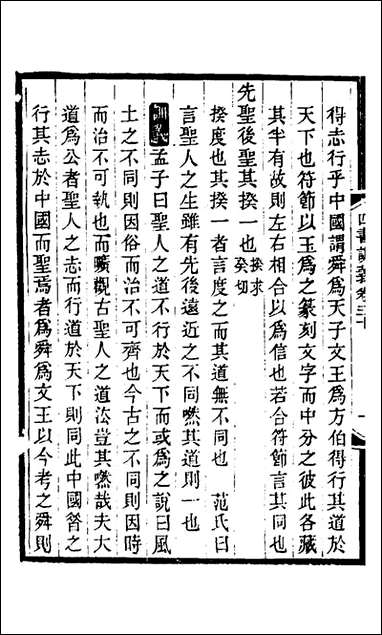 四書訓義卷三十
得志行乎中國謂舜爲天子文王爲方伯得行其道於
天下也符節以玉爲之篆刻文字而中分之彼此各藏
其半有故則左右相合以爲信也若合符節言其同也
先聖後聖其揆一也揆求癸切
揆度也其揆一者言度之而其道無不同也 范氏曰
言聖人之生雖有先後遠近之不同然其道則一也
訓義孟子曰聖人之道不行於天下而或爲之說曰風
土之不同則因俗而治不可齊也今古之不同則因時
而治不可執也而曠觀古聖人之道法豈其然哉夫大
道爲公者聖人之志而行道於天下則同此中國答之
行其志於中國而聖焉者爲舜爲文王以今考之舜則